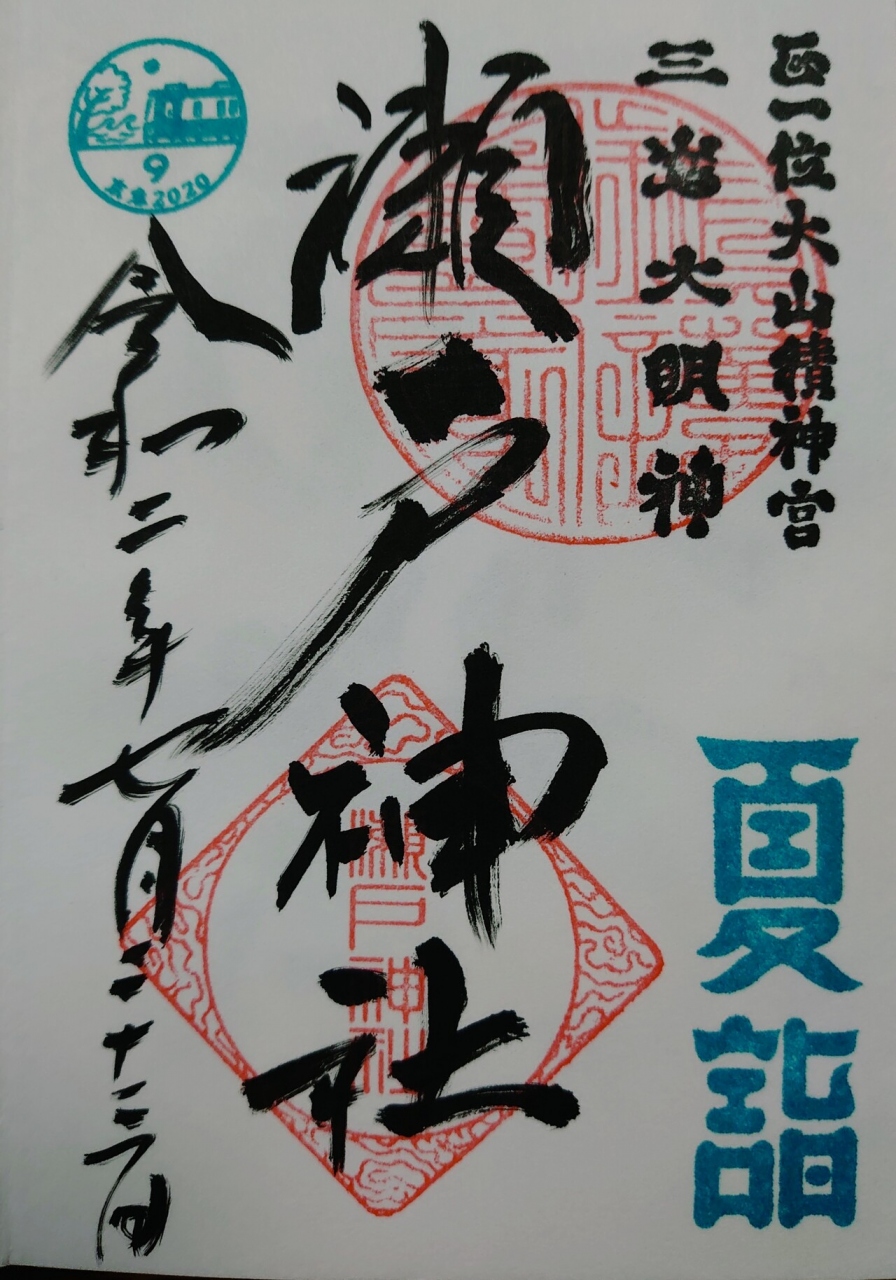 正一位大山積神宮
三嶌大明神
夏詣
瀬戸神社
瀬戸神社
令和二年七月二十二日
9
2020